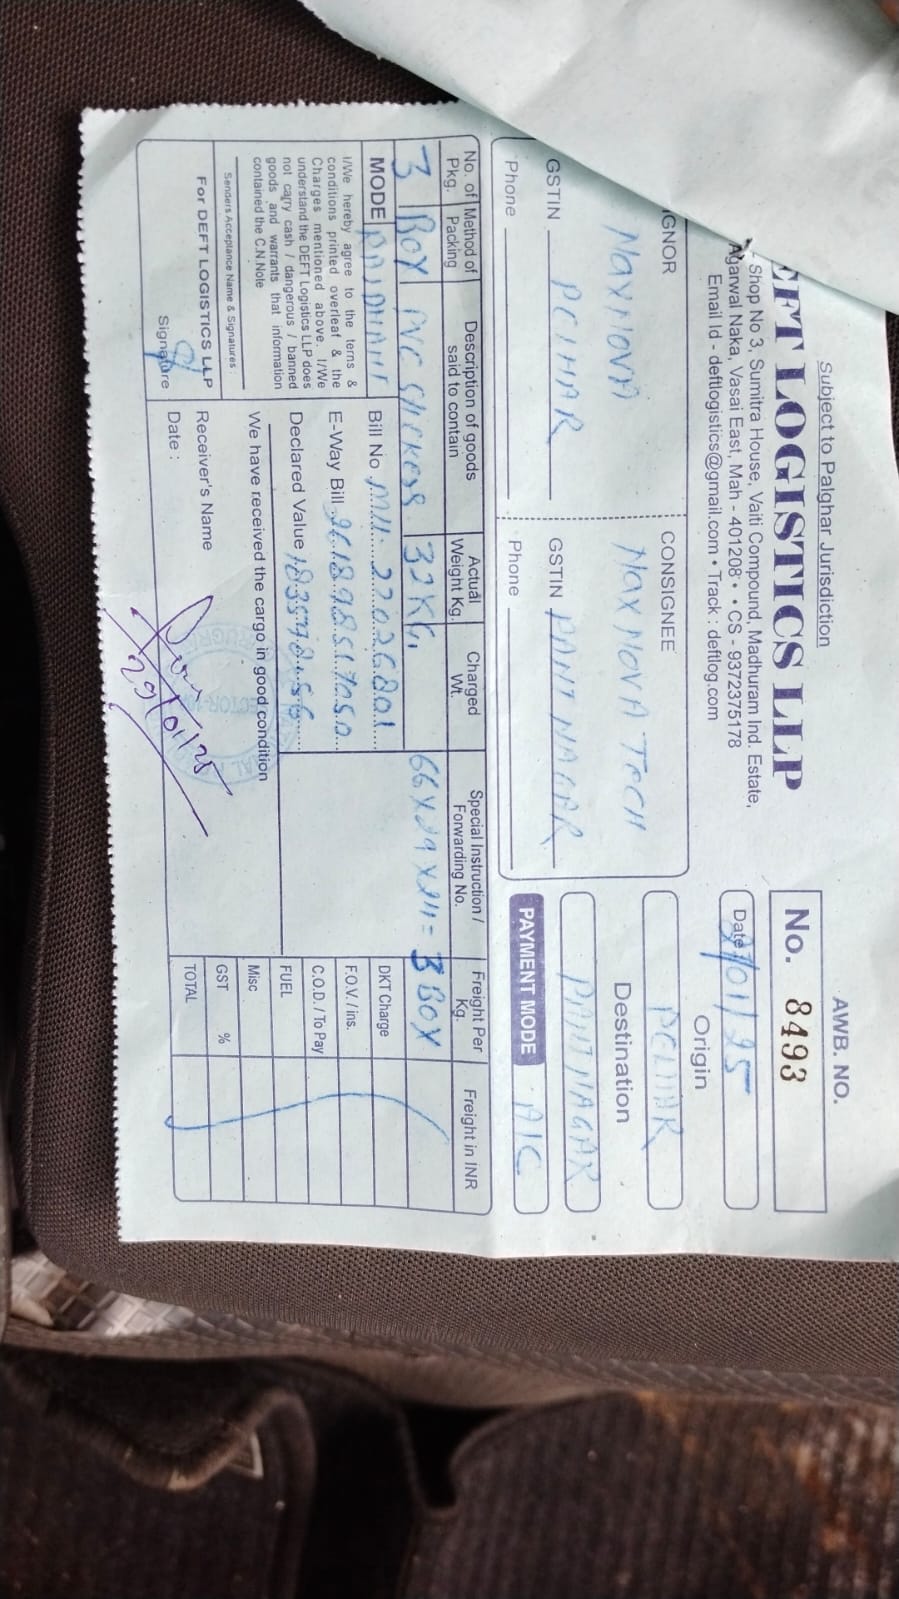 Subject to Palghar Jurisdiction
EFT LOGISTICS LLP
Shop No 3, Sumitra House, Vaiti Compound, Madhuram Ind. Estate,
Agarwal Naka, Vasai East, Mah - 401208 • CS - 9372375178
Email Id - deftlogistics@gmail.com • Track : deftlog.com
AWB. NO.
No. 8493
Date /01/25
Origin
PELHAR
Destination
PANTNAGAR
PAYMENT MODE A/C
IGNOR
MAXNOVA
PELHAR
GSTIN
Phone
CONSIGNEE
MAXNOVA TECH
GSTIN PANTNAGAR
Phone
No. of Pkg. Method of Packing Description of goods said to contain Actual Weight Kg. Charged Wt. Special Instruction / Forwarding No. Freight Per Kg. Freight in INR
3 BOX PVC STICKERS 32 KG. 66X29X24= 3 BOX
MODE
I/We hereby agree to the terns &
conditions printed overleaf & the
Charges mentioned above. I/We
understand the DEFT Logistics LLP does
not carry cash / dangerous / banned
goods and warrants that information
contained the C.N.Note
Senders Acceptance Name & Signatures :
For DEFT LOGISTICS LLP
Signature
Bill No
E-Way Bill
Declared Value
We have received the cargo in good condition
Receiver's Name
Date :
29/01/25
DKT Charge
F.O.V. / ins.
C.O.D. / To Pay
FUEL
Misc
GST %
TOTAL